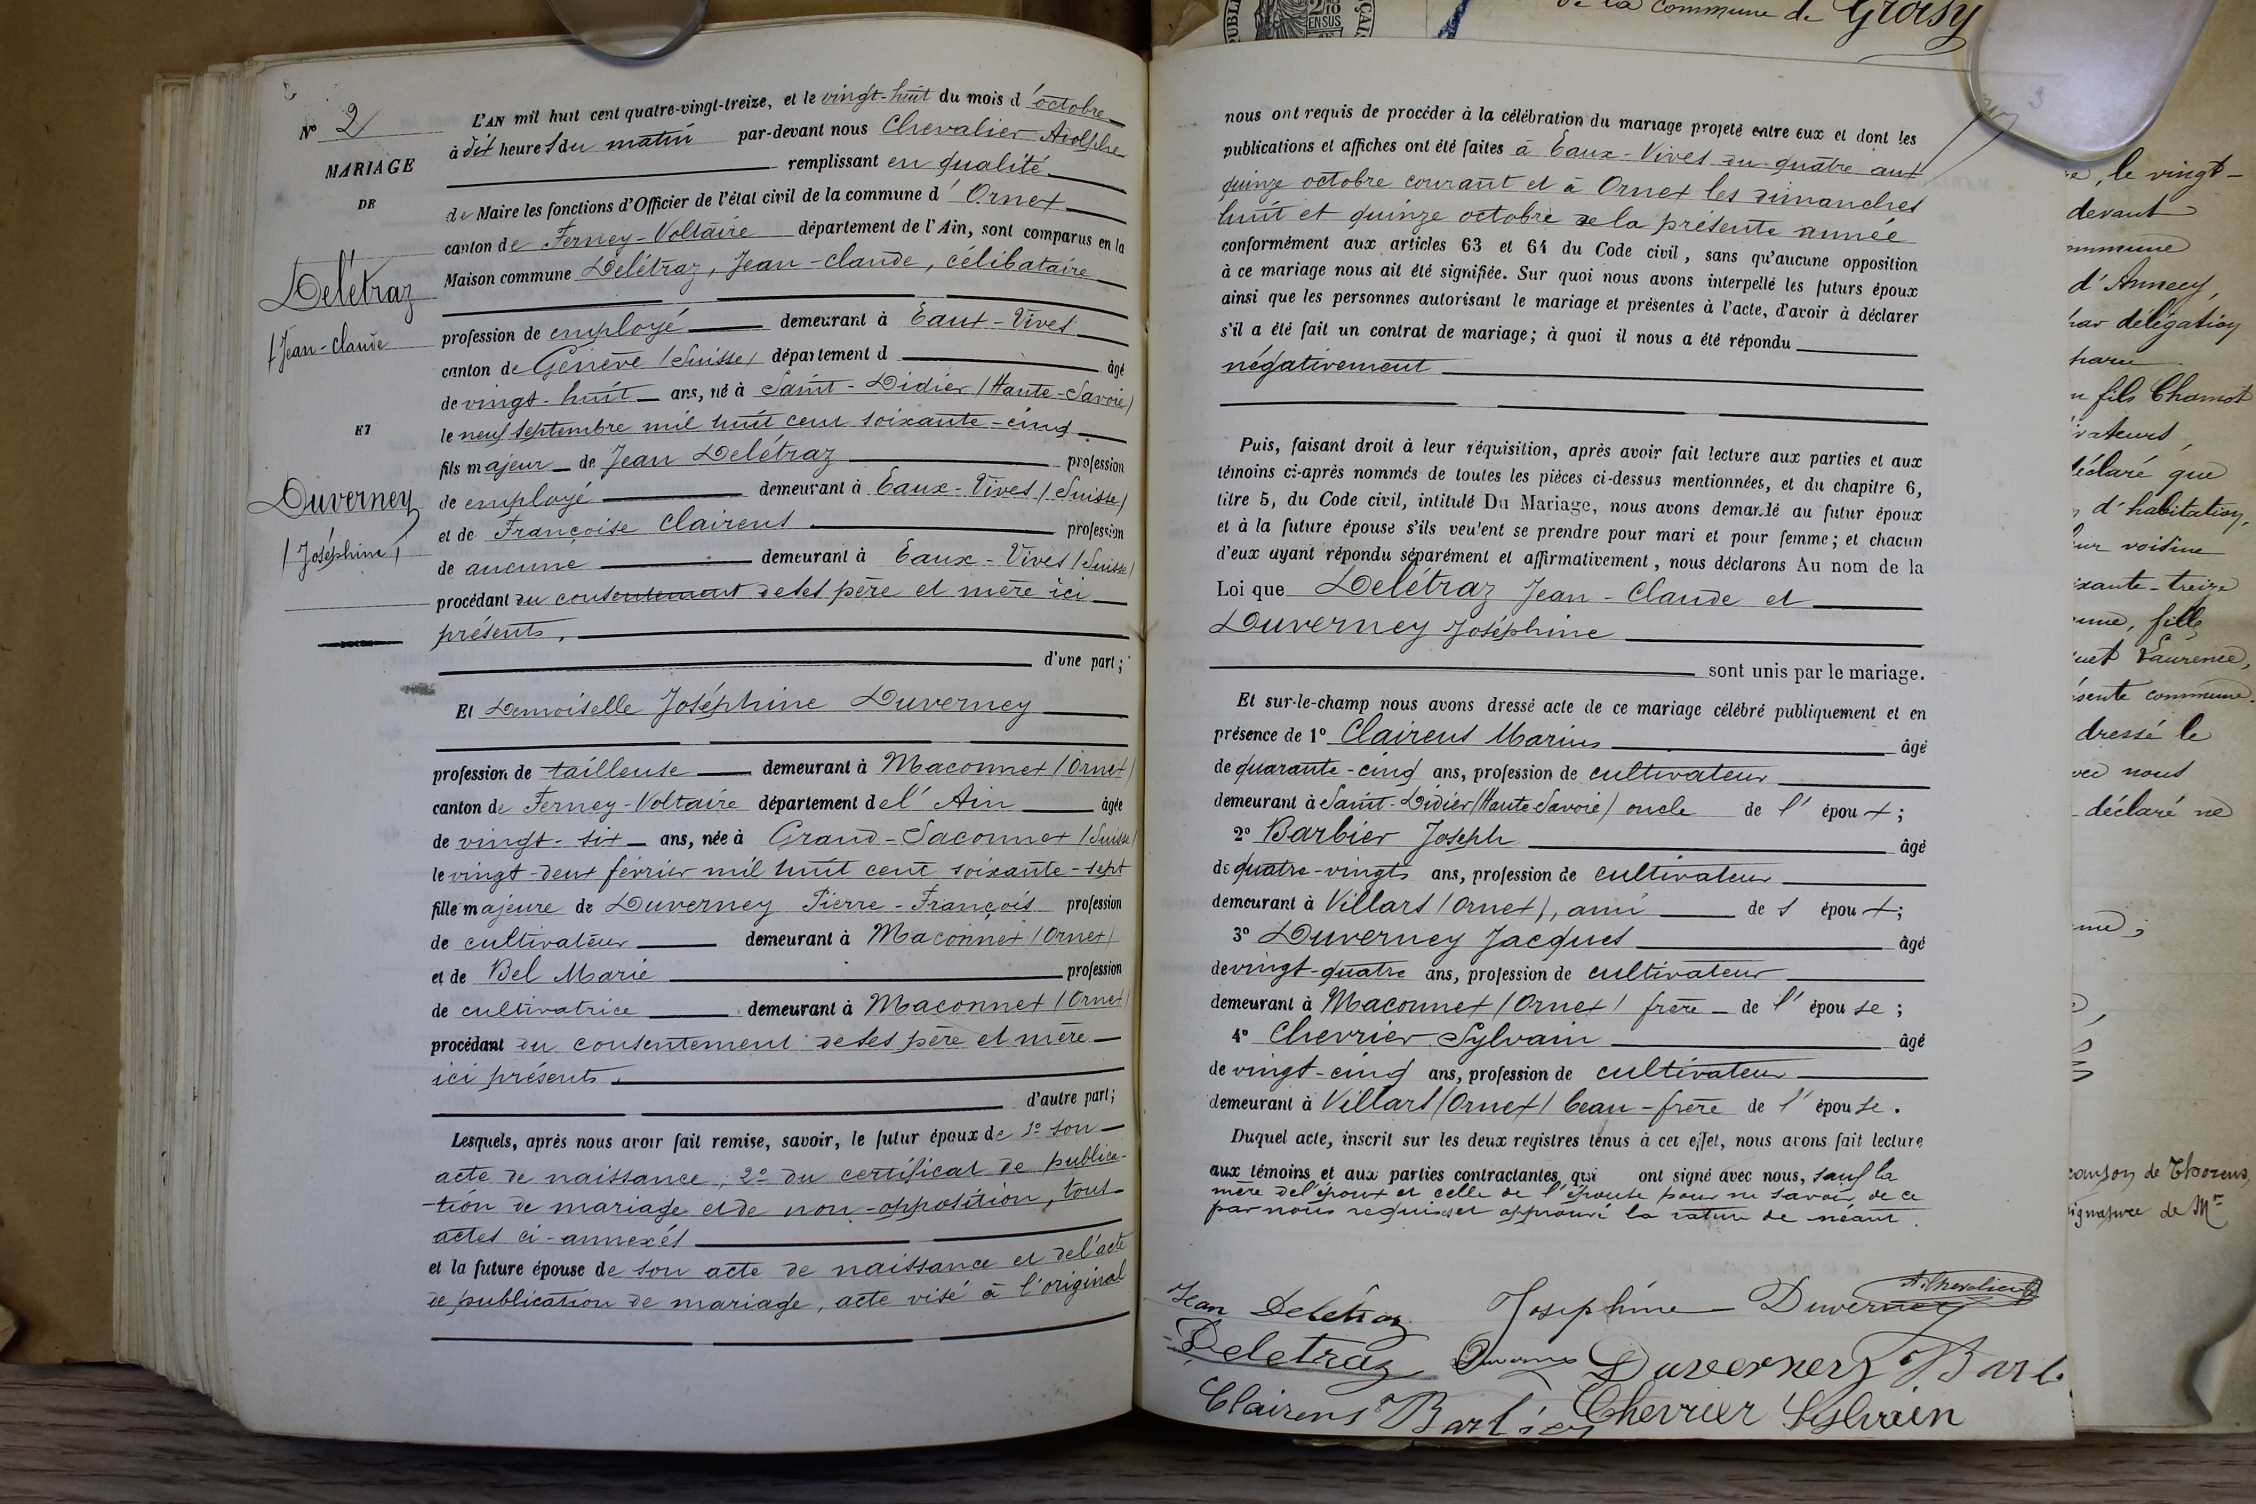 de la commune de Groisy
Nº 2
MARIAGE
DE
Delétraz
/Jean-Claude
ET
Duverney
/Joséphine/
L'AN mil huit cent quatre-vingt-treize, et le vingt-huit du mois d'octobre
à dix heures du matin par-devant nous Chevalier Adolphe
remplissant en qualité
de Maire les fonctions d'Officier de l'état civil de la commune d'Ornex
canton de Ferney-Voltaire département de l'Ain, sont comparus en la
Maison commune Delétraz, Jean-Claude, célibataire
profession de employé demeurant à Eaux-Vives
canton de Genève (Suisse) département d âgé
de vingt-huit ans, né à Saint-Didier (Haute-Savoie)
le neuf septembre mil huit cent soixante-cinq
fils majeur de Jean Delétraz profession
de employé demeurant à Eaux-Vives (Suisse)
et de Françoise Clairens profession
de aucune demeurant à Eaux-Vives (Suisse)
procédant du consentement de ses père et mère ici
présents,
d'une part;
Et Demoiselle Joséphine Duverney
profession de tailleuse demeurant à Maconnex (Ornex)
canton de Ferney-Voltaire département de l'Ain âgée
de vingt-six ans, née à Grand-Saconnex (Suisse)
le vingt-deux février mil huit cent soixante-sept
fille majeure de Duverney Pierre-François profession
de cultivateur demeurant à Maconnex (Ornex)
et de Bel Marie profession
de cultivatrice demeurant à Maconnex (Ornex)
procédant du consentement de ses père et mère
ici présents.
d'autre part;
Lesquels, après nous avoir fait remise, savoir, le futur époux de 1º son
acte de naissance; 2º du certificat de publica-
-tion de mariage et de non-opposition, tous
actes ci-annexés
et la future épouse de son acte de naissance et de l'acte
de publication de mariage, acte visé à l'original
3
nous ont requis de procéder à la célébration du mariage projeté entre eux et dont les
publications et affiches ont été faites à Eaux-Vives du quatre aux
quinze octobre courant et à Ornex les dimanches
huit et quinze octobre de la présente année
conformément aux articles 63 et 64 du Code civil, sans qu'aucune opposition
à ce mariage nous ait été signifiée. Sur quoi nous avons interpellé les futurs époux
ainsi que les personnes autorisant le mariage et présentes à l'acte, d'avoir à déclarer
s'il a été fait un contrat de mariage; à quoi il nous a été répondu
négativement
Puis, faisant droit à leur réquisition, après avoir fait lecture aux parties et aux
témoins ci-après nommés de toutes les pièces ci-dessus mentionnées, et du chapitre 6,
titre 5, du Code civil, intitulé Du Mariage, nous avons demandé au futur époux
et à la future épouse s'ils veulent se prendre pour mari et pour femme; et chacun
d'eux ayant répondu séparément et affirmativement, nous déclarons Au nom de la
Loi que Delétraz Jean-Claude et
Duverney Joséphine
sont unis par le mariage.
Et sur-le-champ nous avons dressé acte de ce mariage célébré publiquement et en
présence de 1º Clairens Marius âgé
de quarante-cinq ans, profession de cultivateur
demeurant à Saint-Didier (Haute-Savoie) oncle de l'époux;
2º Barbier Joseph âgé
de quatre-vingts ans, profession de cultivateur
demeurant à Villars (Ornex), ami de s époux;
3º Duverney Jacques âgé
de vingt-quatre ans, profession de cultivateur
demeurant à Maconnex (Ornex) frère de l'épouse;
4º Chevrier Sylvain âgé
de vingt-cinq ans, profession de cultivateur
demeurant à Villars (Ornex) beau-frère de l'épouse.
Duquel acte, inscrit sur les deux registres tenus à cet effet, nous avons fait lecture
aux témoins et aux parties contractantes, qui ont signé avec nous, sauf la
mère de l'époux et celle de l'épouse pour ne savoir de ce
par nous requises et approuvé la rature de néant.
Jean Delétraz Joséphine Duverney A. Chevalier
Deletraz Duverney Duverney
Clairens Barbier Chevrier Sylvain
le vingt-
devant
d'Annecy,
par délégation
fils Chamot
déclaré que
d'habitation,
voisine
-treize
fille
Laurence,
commune.
dressé le
nous
déclaré ne
canton de Thorens,
signature de Mr